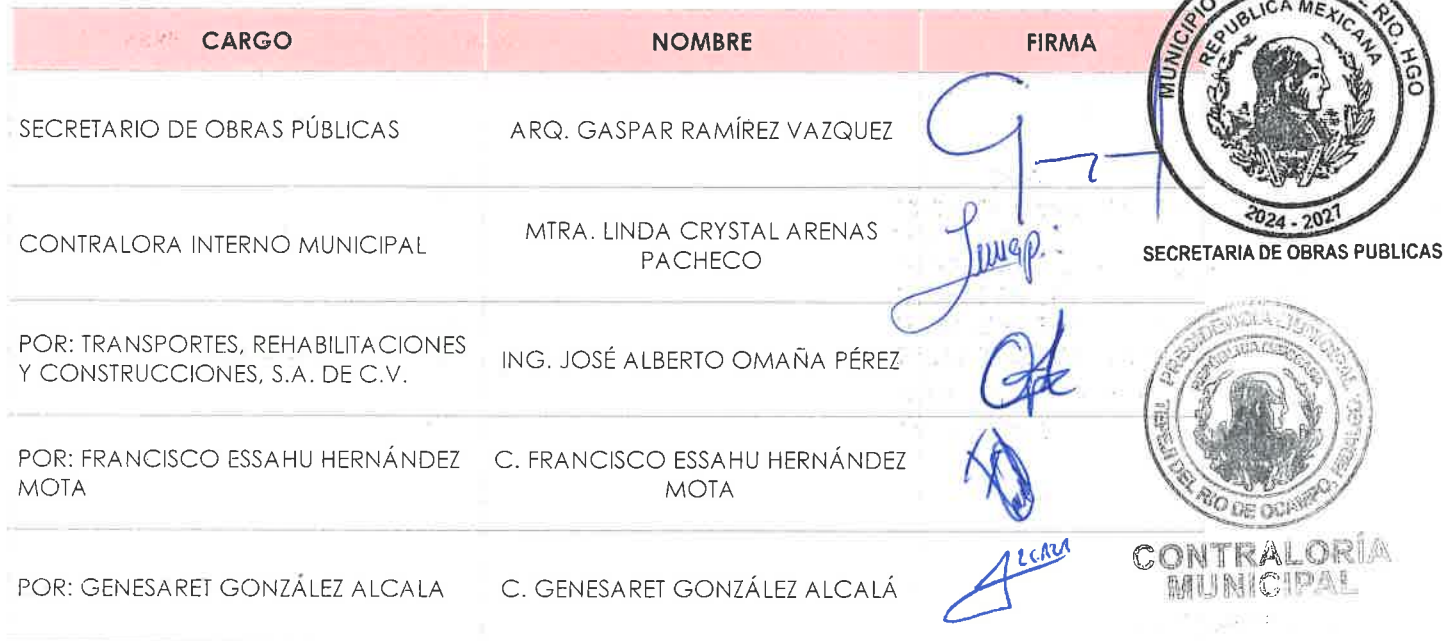 CARGO NOMBRE FIRMA
SECRETARIO DE OBRAS PÚBLICAS ARQ. GASPAR RAMÍREZ VAZQUEZ
CONTRALORA INTERNO MUNICIPAL MTRA. LINDA CRYSTAL ARENAS
PACHECO
POR: TRANSPORTES, REHABILITACIONES
Y CONSTRUCCIONES, S.A. DE C.V. ING. JOSÉ ALBERTO OMAÑA PÉREZ
POR: FRANCISCO ESSAHU HERNÁNDEZ
MOTA
C. FRANCISCO ESSAHU HERNÁNDEZ
MOTA
POR: GENESARET GONZÁLEZ ALCALA C. GENESARET GONZÁLEZ ALCALÁ
MUNICIPIO RIO, HGO
REPUBLICA MEXICANA
2024 - 2027
SECRETARIA DE OBRAS PUBLICAS
PRESIDENCIA MUNICIPAL
DEL RIO DE OCAMPO, HIDALGO
REPÚBLICA MEXICANA
CONTRALORÍA
MUNICIPAL